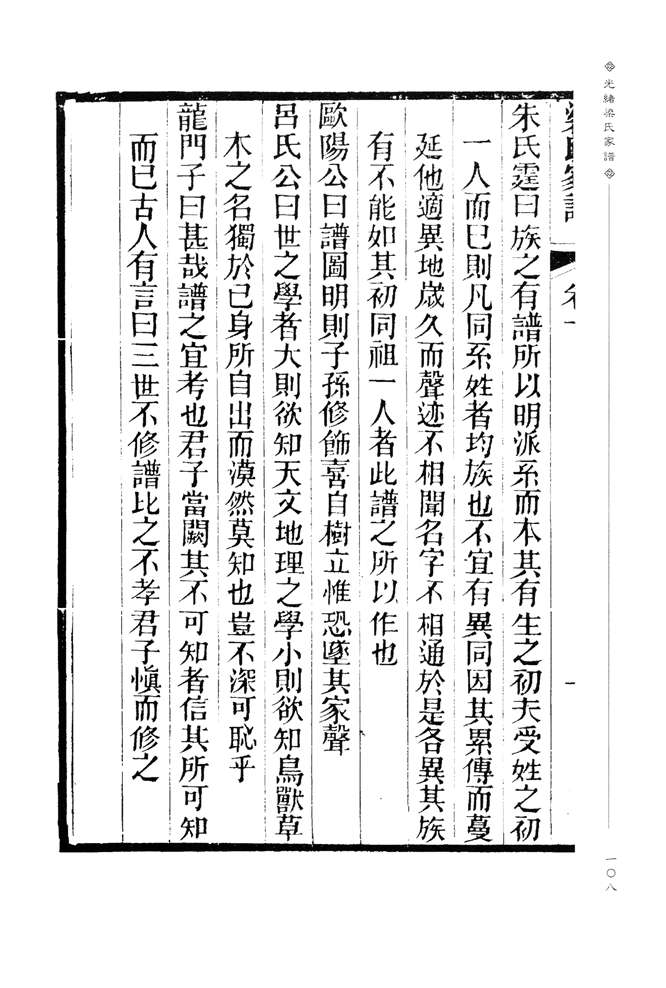 光緒梁氏家譜
一〇八
梁氏家譜 卷一 一
朱氏霆曰族之有譜所以明派系而本其有生之初夫受姓之初
一人而巳則凡同系姓者均族也不宜有異同因其累傳而蔓
延他適異地歳久而聲迹不相聞名字不相通於是各異其族
有不能如其初同祖一人者此譜之所以作也
歐陽公曰譜圖明則子孫修飾喜自樹立惟恐墜其家聲
呂氏公曰世之學者大則欲知天文地理之學小則欲知鳥獸草
木之名獨於已身所自出而漠然莫知也豈不深可恥乎
龍門子曰甚哉譜之宜考也君子當闕其不可知者信其所可知
而巳古人有言曰三世不修譜比之不孝君子愼而修之